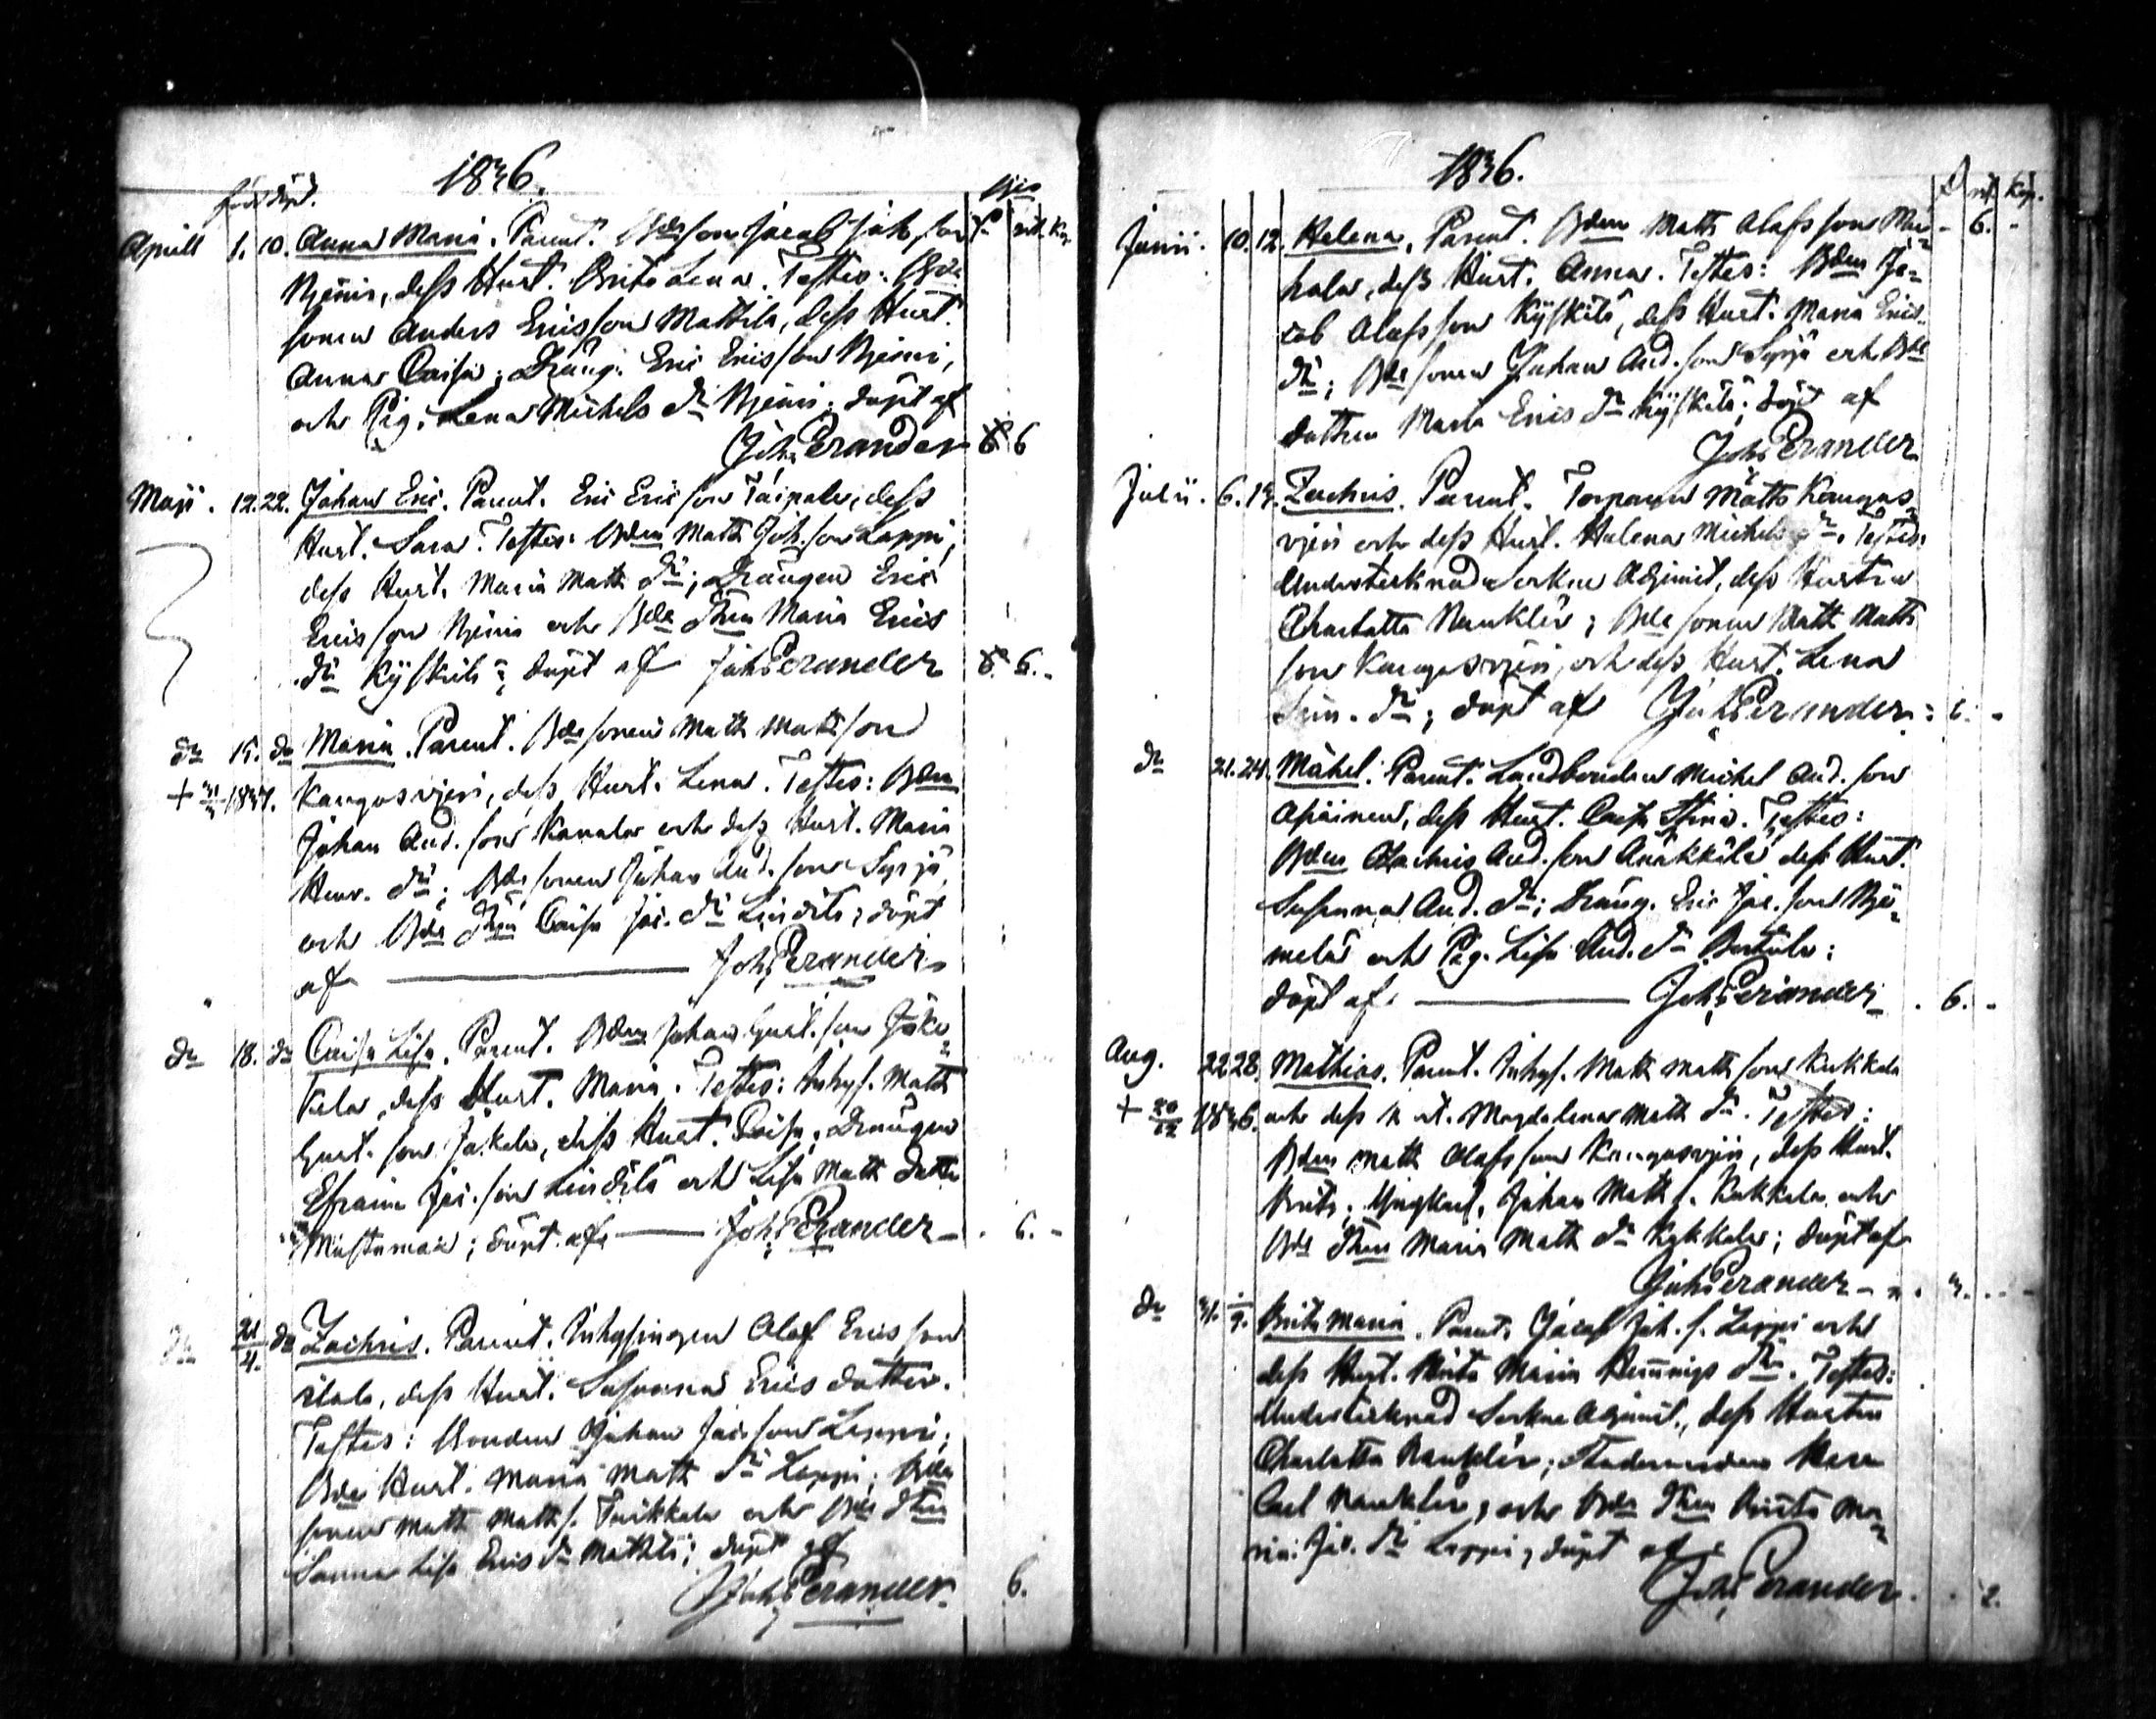 1836.
född döpt.
Aprill 1. 10. Anna Maria. Parent. Bdesonen Jacob Joh. son
Njemi, dess Hust. Brita Lena. Testes: Bde
sonen Anders Ericsson Mattila, dess Hust.
Anna Caisa; Dräng. Eric Ericsson Njemi,
och Pig. Lena Michels dr Njemi; döpt af
Joh. Perander 6
Maji. 12. 22. Johan Eric. Parent. Eric Ericsson Taipale, dess
Hust. Sara. Testes: Bden Matts Joh. son Lappi,
dess Hust. Maria Matts dr; Drängen Eric
Ericsson Njemi och Bde dtren Maria Erics
dr Kyskilä; döpt af Joh. Perander 6. -
dn 15. dn Maria. Parent. Bdesonen Matts Mattsson
+ 1837. Kangasvjeri, dess Hust. Lena. Testes: Bden
Johan And. son Kanala och dess Hust. Maria
Henr. dr; Bdesonen Johan And. son Syrjä
och Bde dtren Caisa Jac. dr Lindila; döpt
af Joh. Perander
dn 18. dn Caisa Lisa. Parent. Bden Johan Gust. son Jäke-
kela, dess Hust. Maria. Testes: Inhys. Matts
Gust. son Jakela, dess Hust. Caisa; Drängen
Efraim Jac. son Lindilä och Lisa Matts dotter
Mustamaa; döpt af Joh. Perander - . 6. -
dn Zachris. Parent. Inhysingen Olof Ericsson
dess Hust. Susanna Erics dotter.
Testes: Bonden Johan Jac. son Lappi,
Bde Hust. Maria Matts dr Lappi; Bde
sonen Matts Matts s. Turkkala och Bde dtren
Sanna Lisa Erics dr Mattila; döpt af
Joh. Perander. 6.
1836.
Junii. 10. 12. Helena. Parent. Bden Matts Olofsson Mar- - 6. -
hala, dess Hust. Anna. Testes: Bden Ja-
cob Olofsson Kyskilä, dess Hust. Maria Erics
dr; Bdesonen Johan And. son Syrjä och Bde
dottren Maria Erics dr Kyskilä; döpt af
Joh. Perander
Julii. 6. 13. Zachris. Parent. Torparen Matts Kangas-
vjeri och dess Hust. Helena Michels dr. Testes:
Undertecknad Sockne Adjunct, dess Hustru
Charlotta Nankler; Bdesonen Matts Matts
son Kangasvjeri, och dess Hust. Lena
dr; döpt af Joh. Perander
dn 21. 24. Michel. Parent. Landbonden Michel And. son
Apiainen, dess Hust. Caisa Stina. Testes:
Bden Zachris And. son Anäkkälä dess Hust.
Susanna And. dr; Dräng. Eric Jac. son Nje-
melä och Pig. Lisa And. dr Bertula;
döpt af Joh. Perander . 6. -
Aug. 22 28. Mathias. Parent. Inhys. Matts Matts son Kukkala
+ 20/12 1836. och dess Hust. Magdalena Matts dr. Testes:
Bden Matts Olofsson Kangasvjeri, dess Hust.
Brita; Ungkarl. Johan Matts s. Kukkala och
Bde dtren Maria Matts dr Kukkala; döpt af
Joh. Perander - 3.
dn 31. 1/9. Brita Maria. Parent. Jacob Joh. s. Lappi och
dess Hust. Brita Maria Hennings dr. Testes:
Undertecknad Sockne Adjunct, dess Hustru
Charlotta Nankler; Studeranden Herr
Carl Nankler, och Bde dtren Brita Ma-
ria Jac. dr Lappi; döpt af
Joh. Perander. 2.